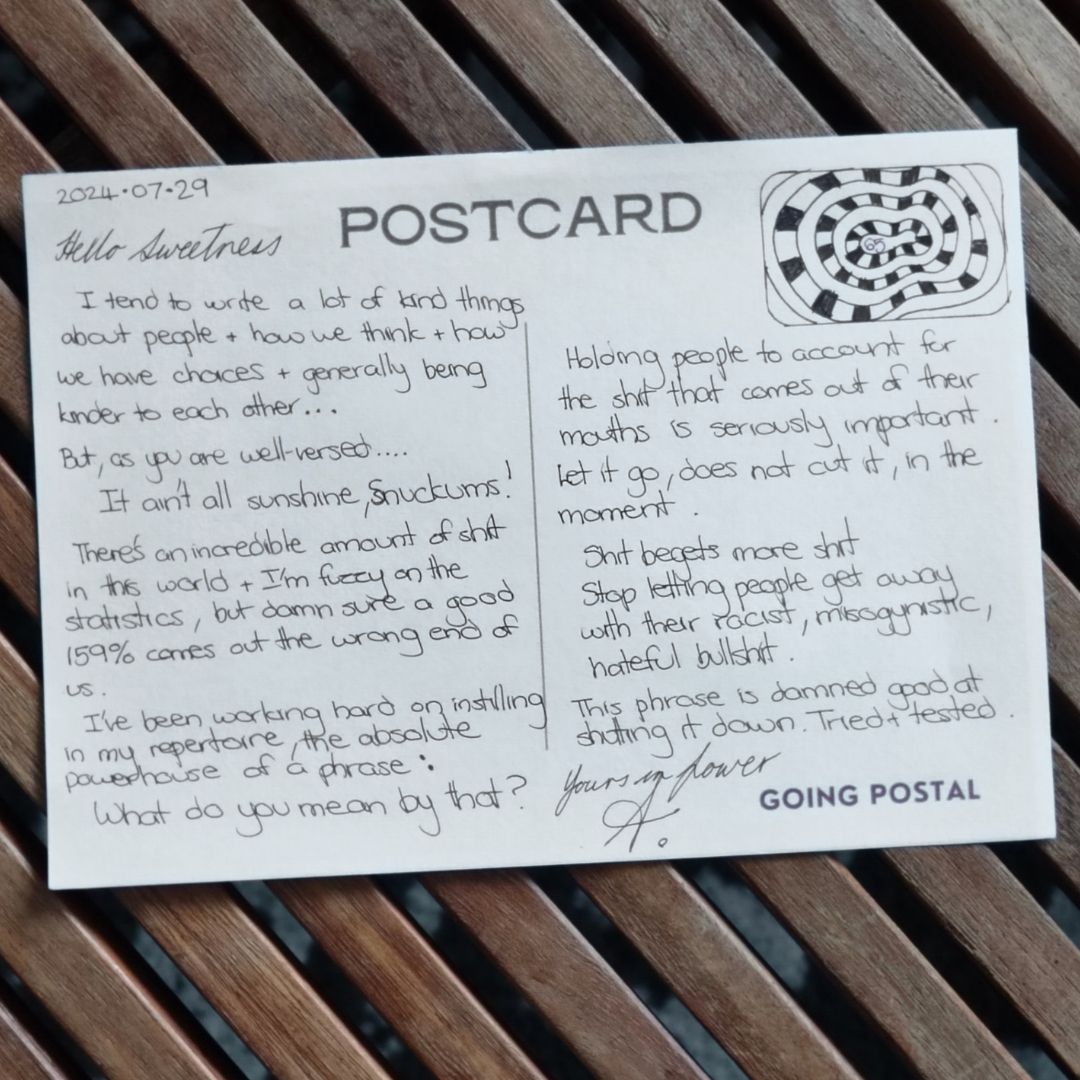 2024.07.29
POSTCARD
65
Hello Sweetness
I tend to write a lot of kind things
about people + how we think + how
we have choices + generally being
kinder to each other...
But, as you are well-versed....
It ain't all sunshine, Snuckums!
There's an incredible amount of shit
in this world + I'm fuzzy on the
statistics, but damn sure a good
159% comes out the wrong end of
us.
I've been working hard on instilling
in my repertoire, the absolute
powerhouse of a phrase:
What do you mean by that?
Holding people to account for
the shit that comes out of their
mouths is seriously important.
Let it go, does not cut it, in the
moment.
Shit begets more shit
Stop letting people get away
with their racist, misogynistic,
hateful bullshit.
This phrase is damned good at
shutting it down. Tried + tested.
Yours in power
A.
GOING POSTAL